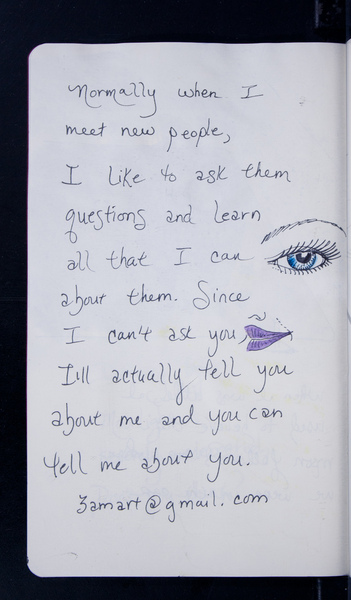 Normally when I
meet new people,
I like to ask them
questions and learn
all that I can
about them. Since
I can't ask you,
I'll actually tell you
about me and you can
tell me about you.
3amart@gmail.com